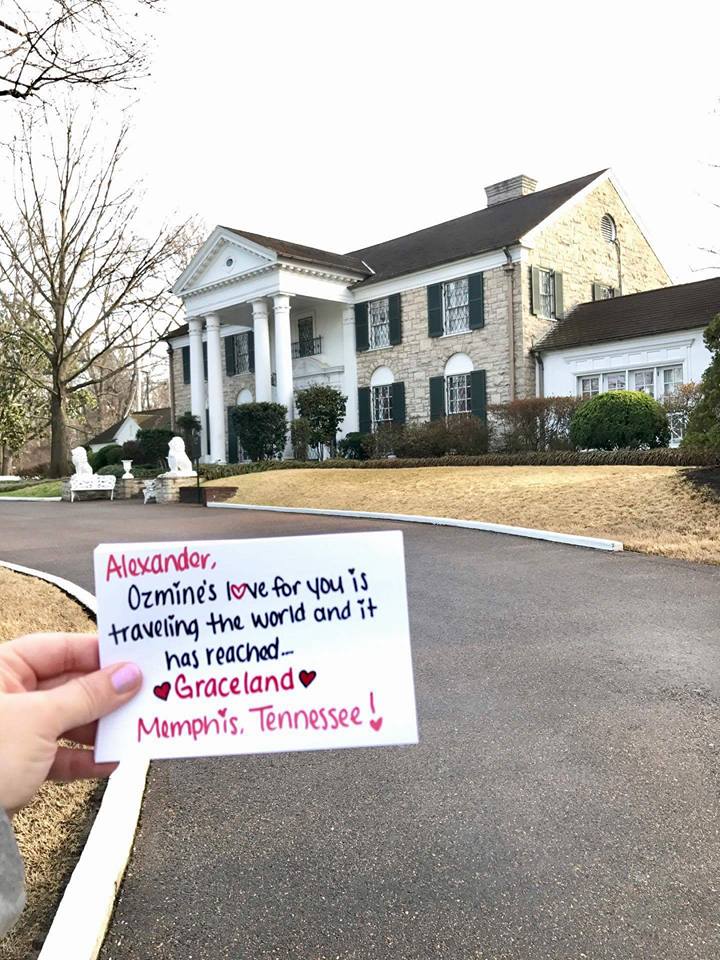 Alexander,
Ozmine's love for you is
traveling the world and it
has reached...
Graceland
Memphis, Tennessee!